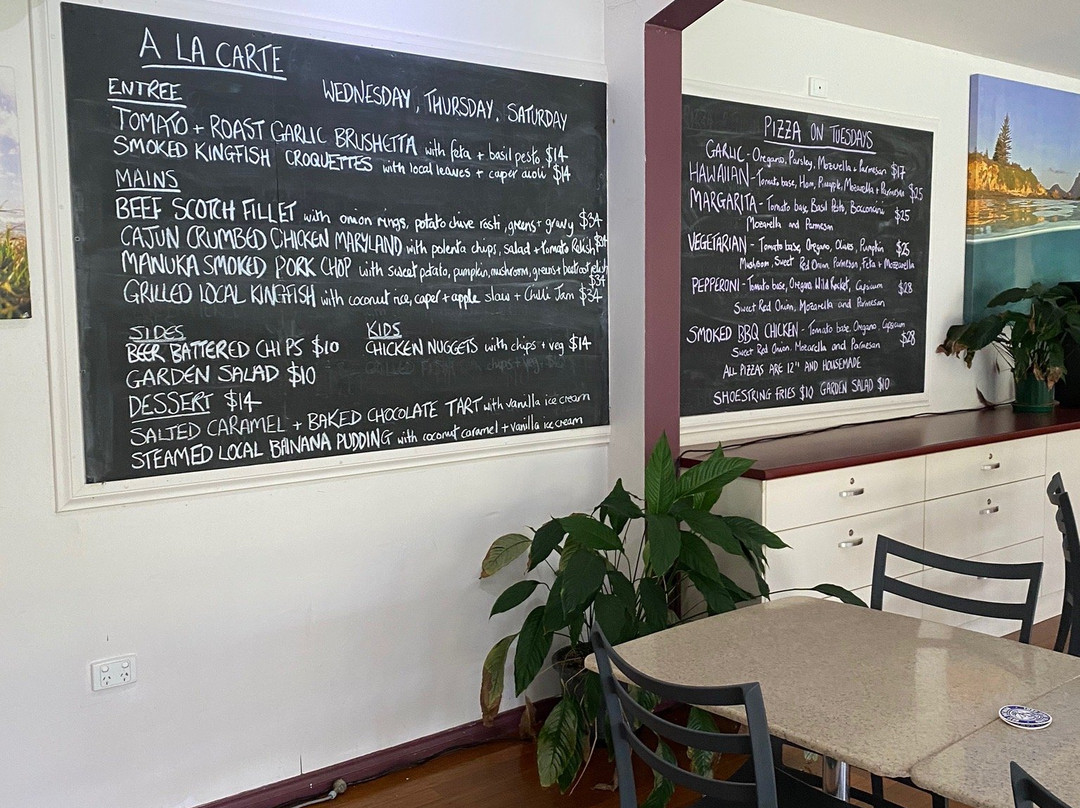 A LA CARTE
ENTREE
WEDNESDAY, THURSDAY, SATURDAY
TOMATO + ROAST GARLIC BRUSHETTA with feta + basil pesto $14
SMOKED KINGFISH CROQUETTES with local leaves + caper aioli $14
MAINS
BEEF SCOTCH FILLET with onion rings, potato chive rosti, greens + gravy $34
CAJUN CRUMBED CHICKEN MARYLAND with polenta chips, salad + tomato Relish $34
MANUKA SMOKED PORK CHOP with sweet potato, pumpkin, mushroom, greens + beetroot relish
$34
GRILLED LOCAL KINGFISH with coconut rice, caper + apple slaw + Chilli Jam $34
SIDES
BEER BATTERED CHIPS $10
GARDEN SALAD $10
KIDS
CHICKEN NUGGETS with chips + veg $14
DESSERT $14
SALTED CARAMEL + BAKED CHOCOLATE TART with vanilla ice cream
STEAMED LOCAL BANANA PUDDING with coconut caramel + vanilla ice cream
PIZZA ON TUESDAYS
GARLIC - Oregano, Parsley, Mozarella + Parmesan $17
HAWAIIAN - Tomato base, Ham, Pineapple, Mozarella + Parmesan $25
MARGARITA - Tomato base, Basil Pesto, Bocconcini $25
Mozarella and Parmesan
VEGETARIAN - Tomato base, Oregano, Olives, Pumpkin $25
Mushroom, Sweet Red Onion, Parmesan, Feta + Mozzarella
PEPPERONI - Tomato base, Oregano Wild Rocket, Capsicum $28
Sweet Red Onion, Mozarella and Parmesan
SMOKED BBQ CHICKEN - Tomato base, Oregano, Capsicum $28
Sweet Red Onion, Mozarella and Parmesan
ALL PIZZAS ARE 12" AND HOUSEMADE
SHOESTRING FRIES $10 GARDEN SALAD $10